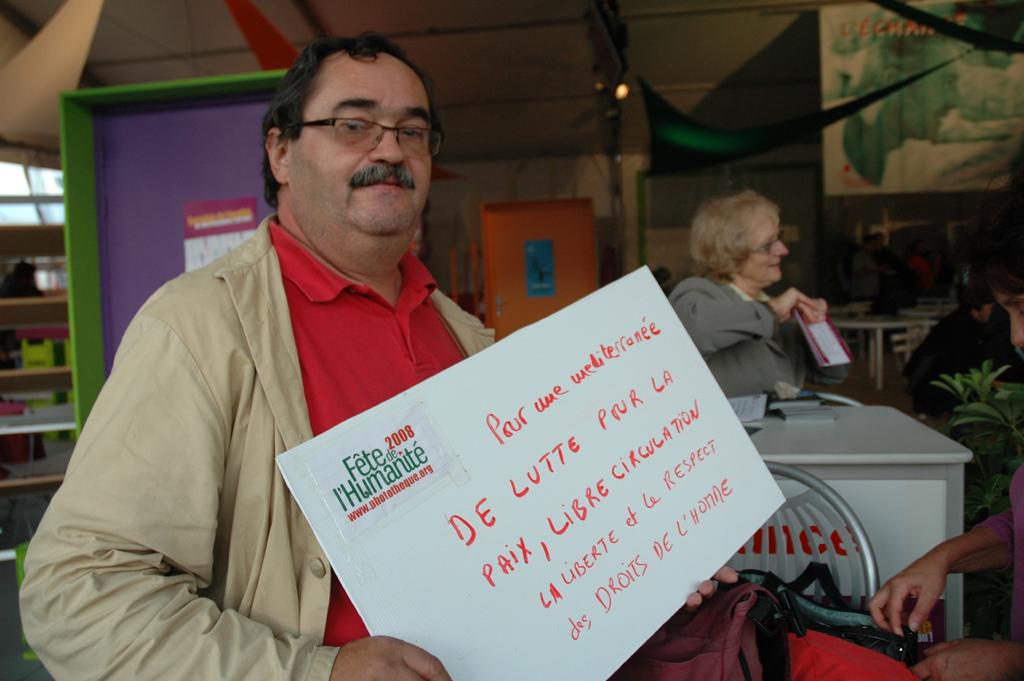 L'ÉCHAN
2008
Fête de
l'Humanité
www.phototheque.org
Pour une mediterranée
DE LUTTE POUR LA
PAIX, LIBRE CIRCULATION
LA LIBERTE et le RESPECT
des DROITS DE L'HOMME